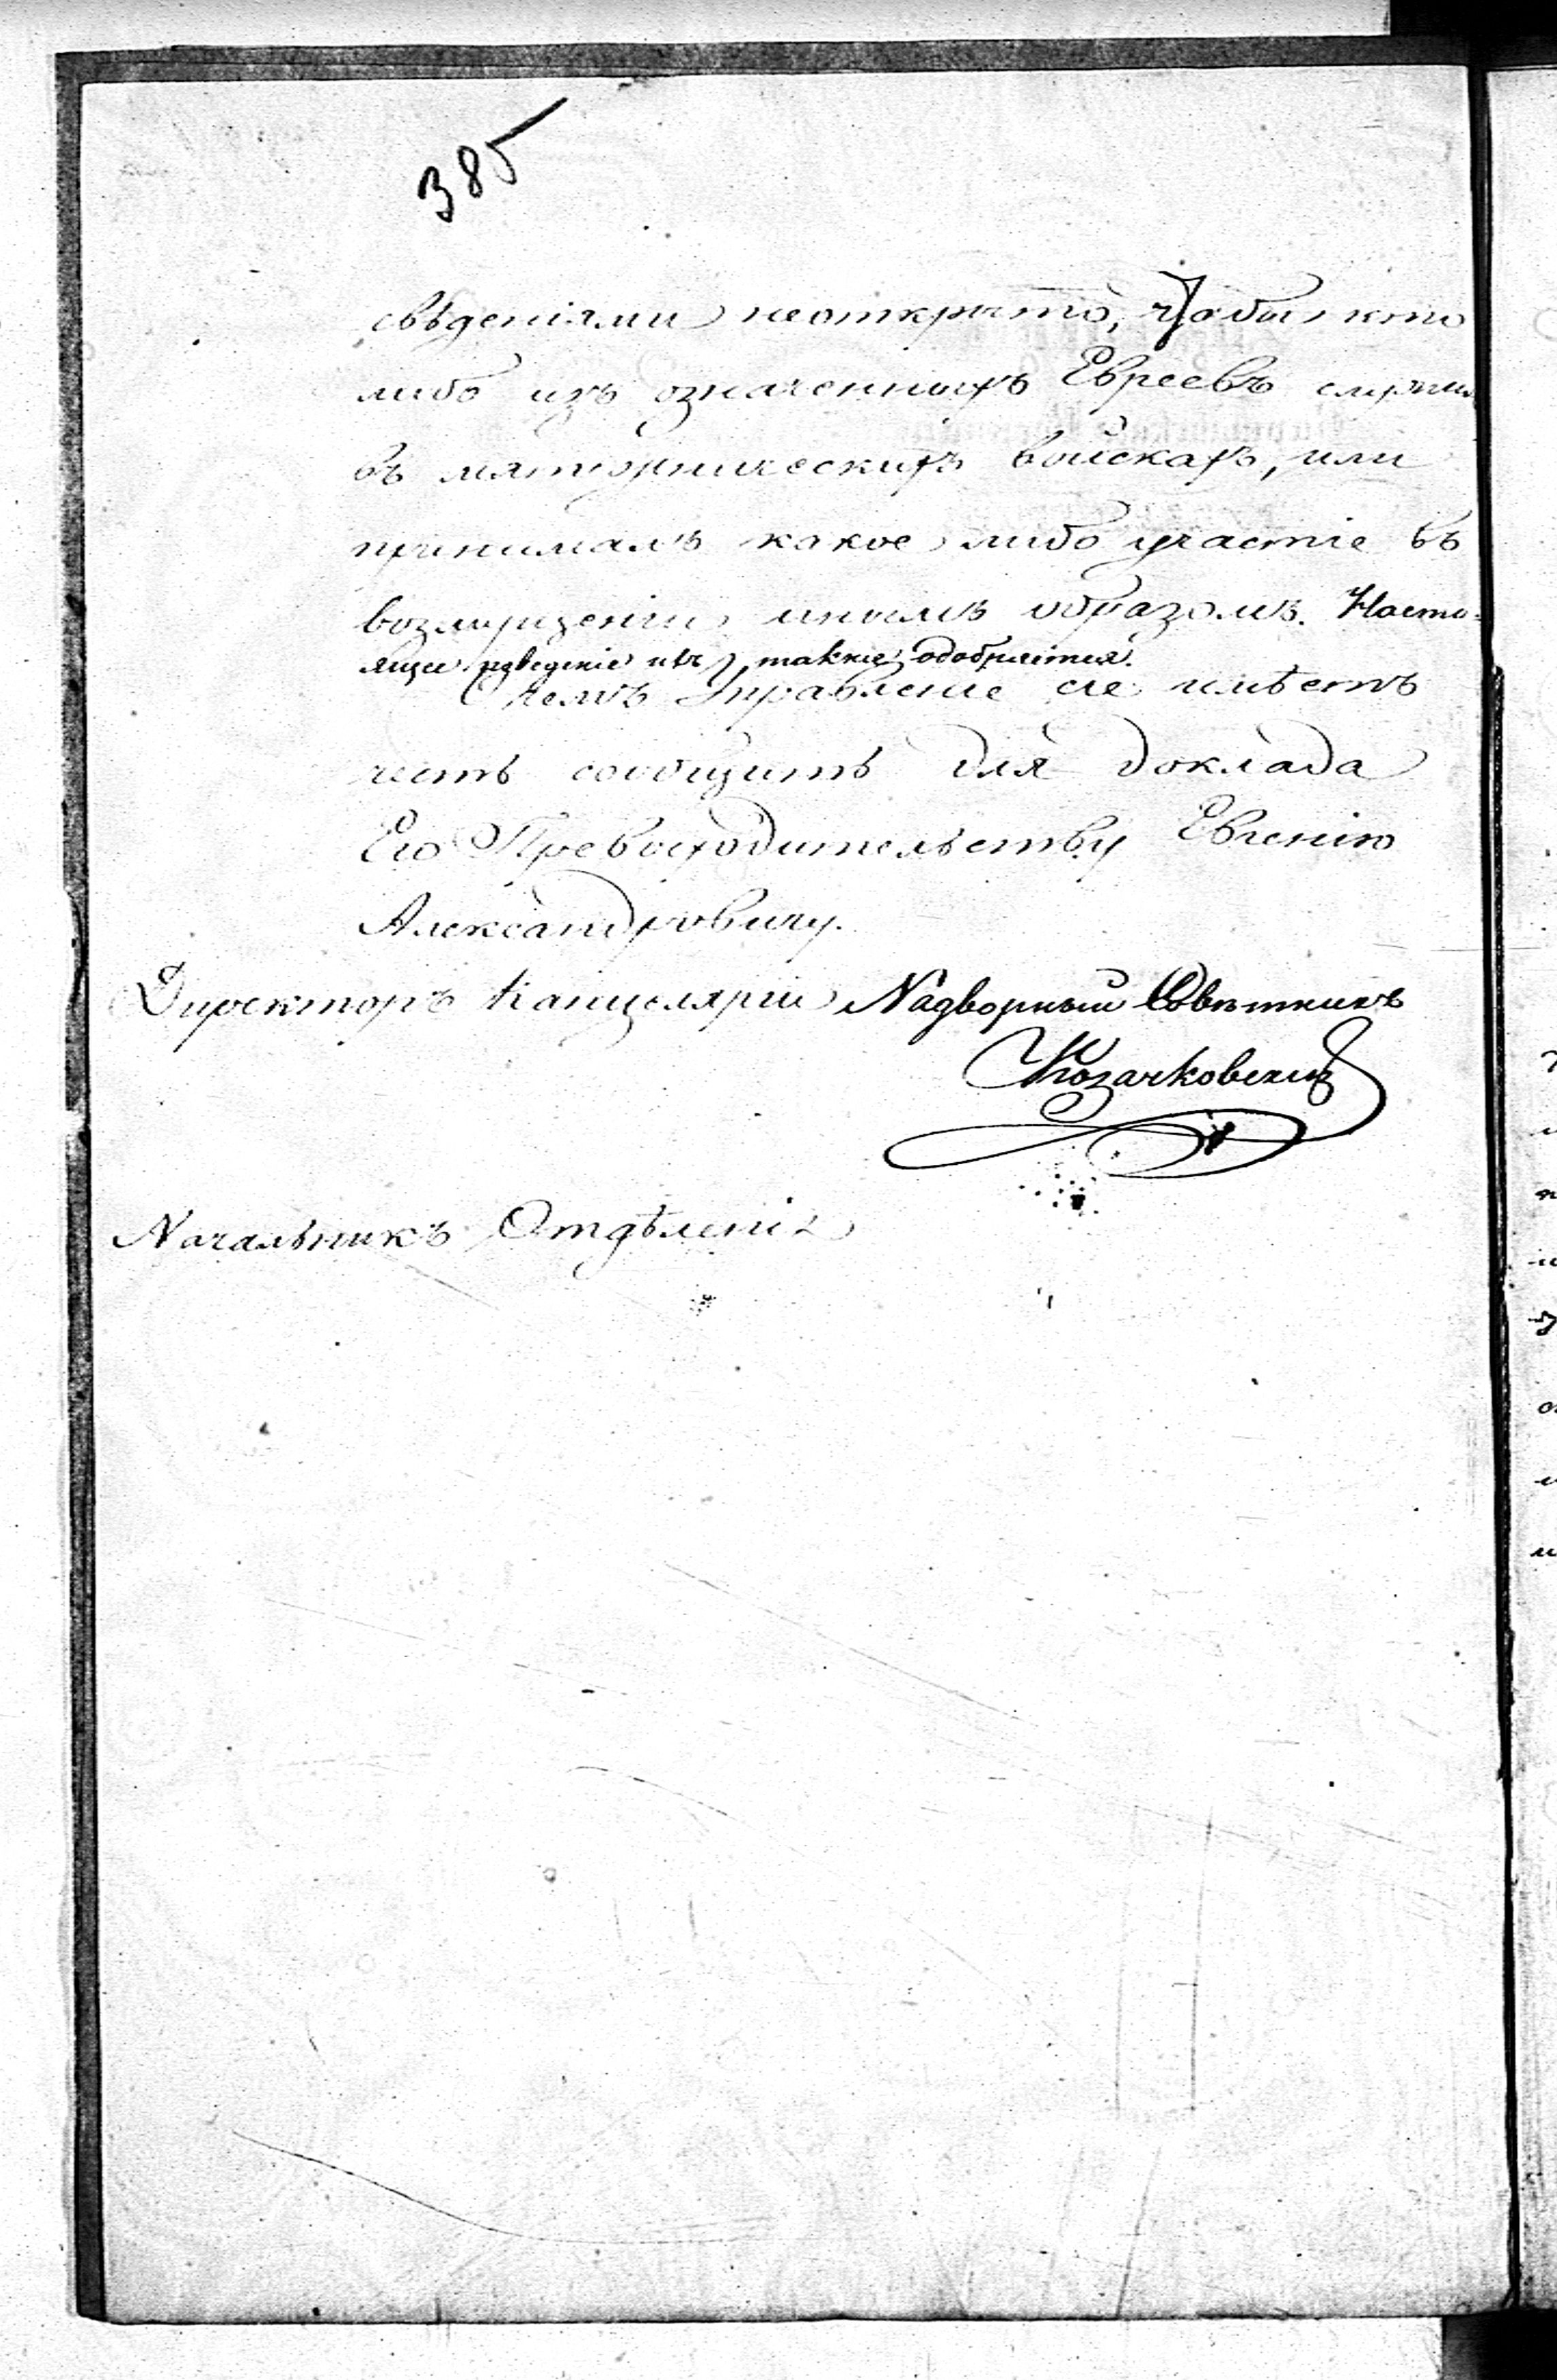 385
свѣденіями неоткрыто, чтобы кто
либо изъ означенныхъ Евреевъ служилъ
въ мятежническихъ войскахъ, или
принималъ какое либо участіе въ
возмущеніи инымъ образомъ. Насто-
ящее поведеніе ихъ также одобряется.
О чемъ Управленіе сіе имѣетъ
честь сообщить для доклада
Его Превосходительству Евгенію
Александровичу.
Директоръ Канцеляріи Надворный Совѣтникъ
Козачковскій
Начальникъ Отдѣленія